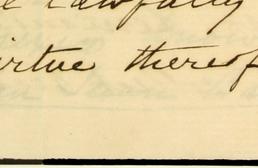 lawfully
virtue thereof